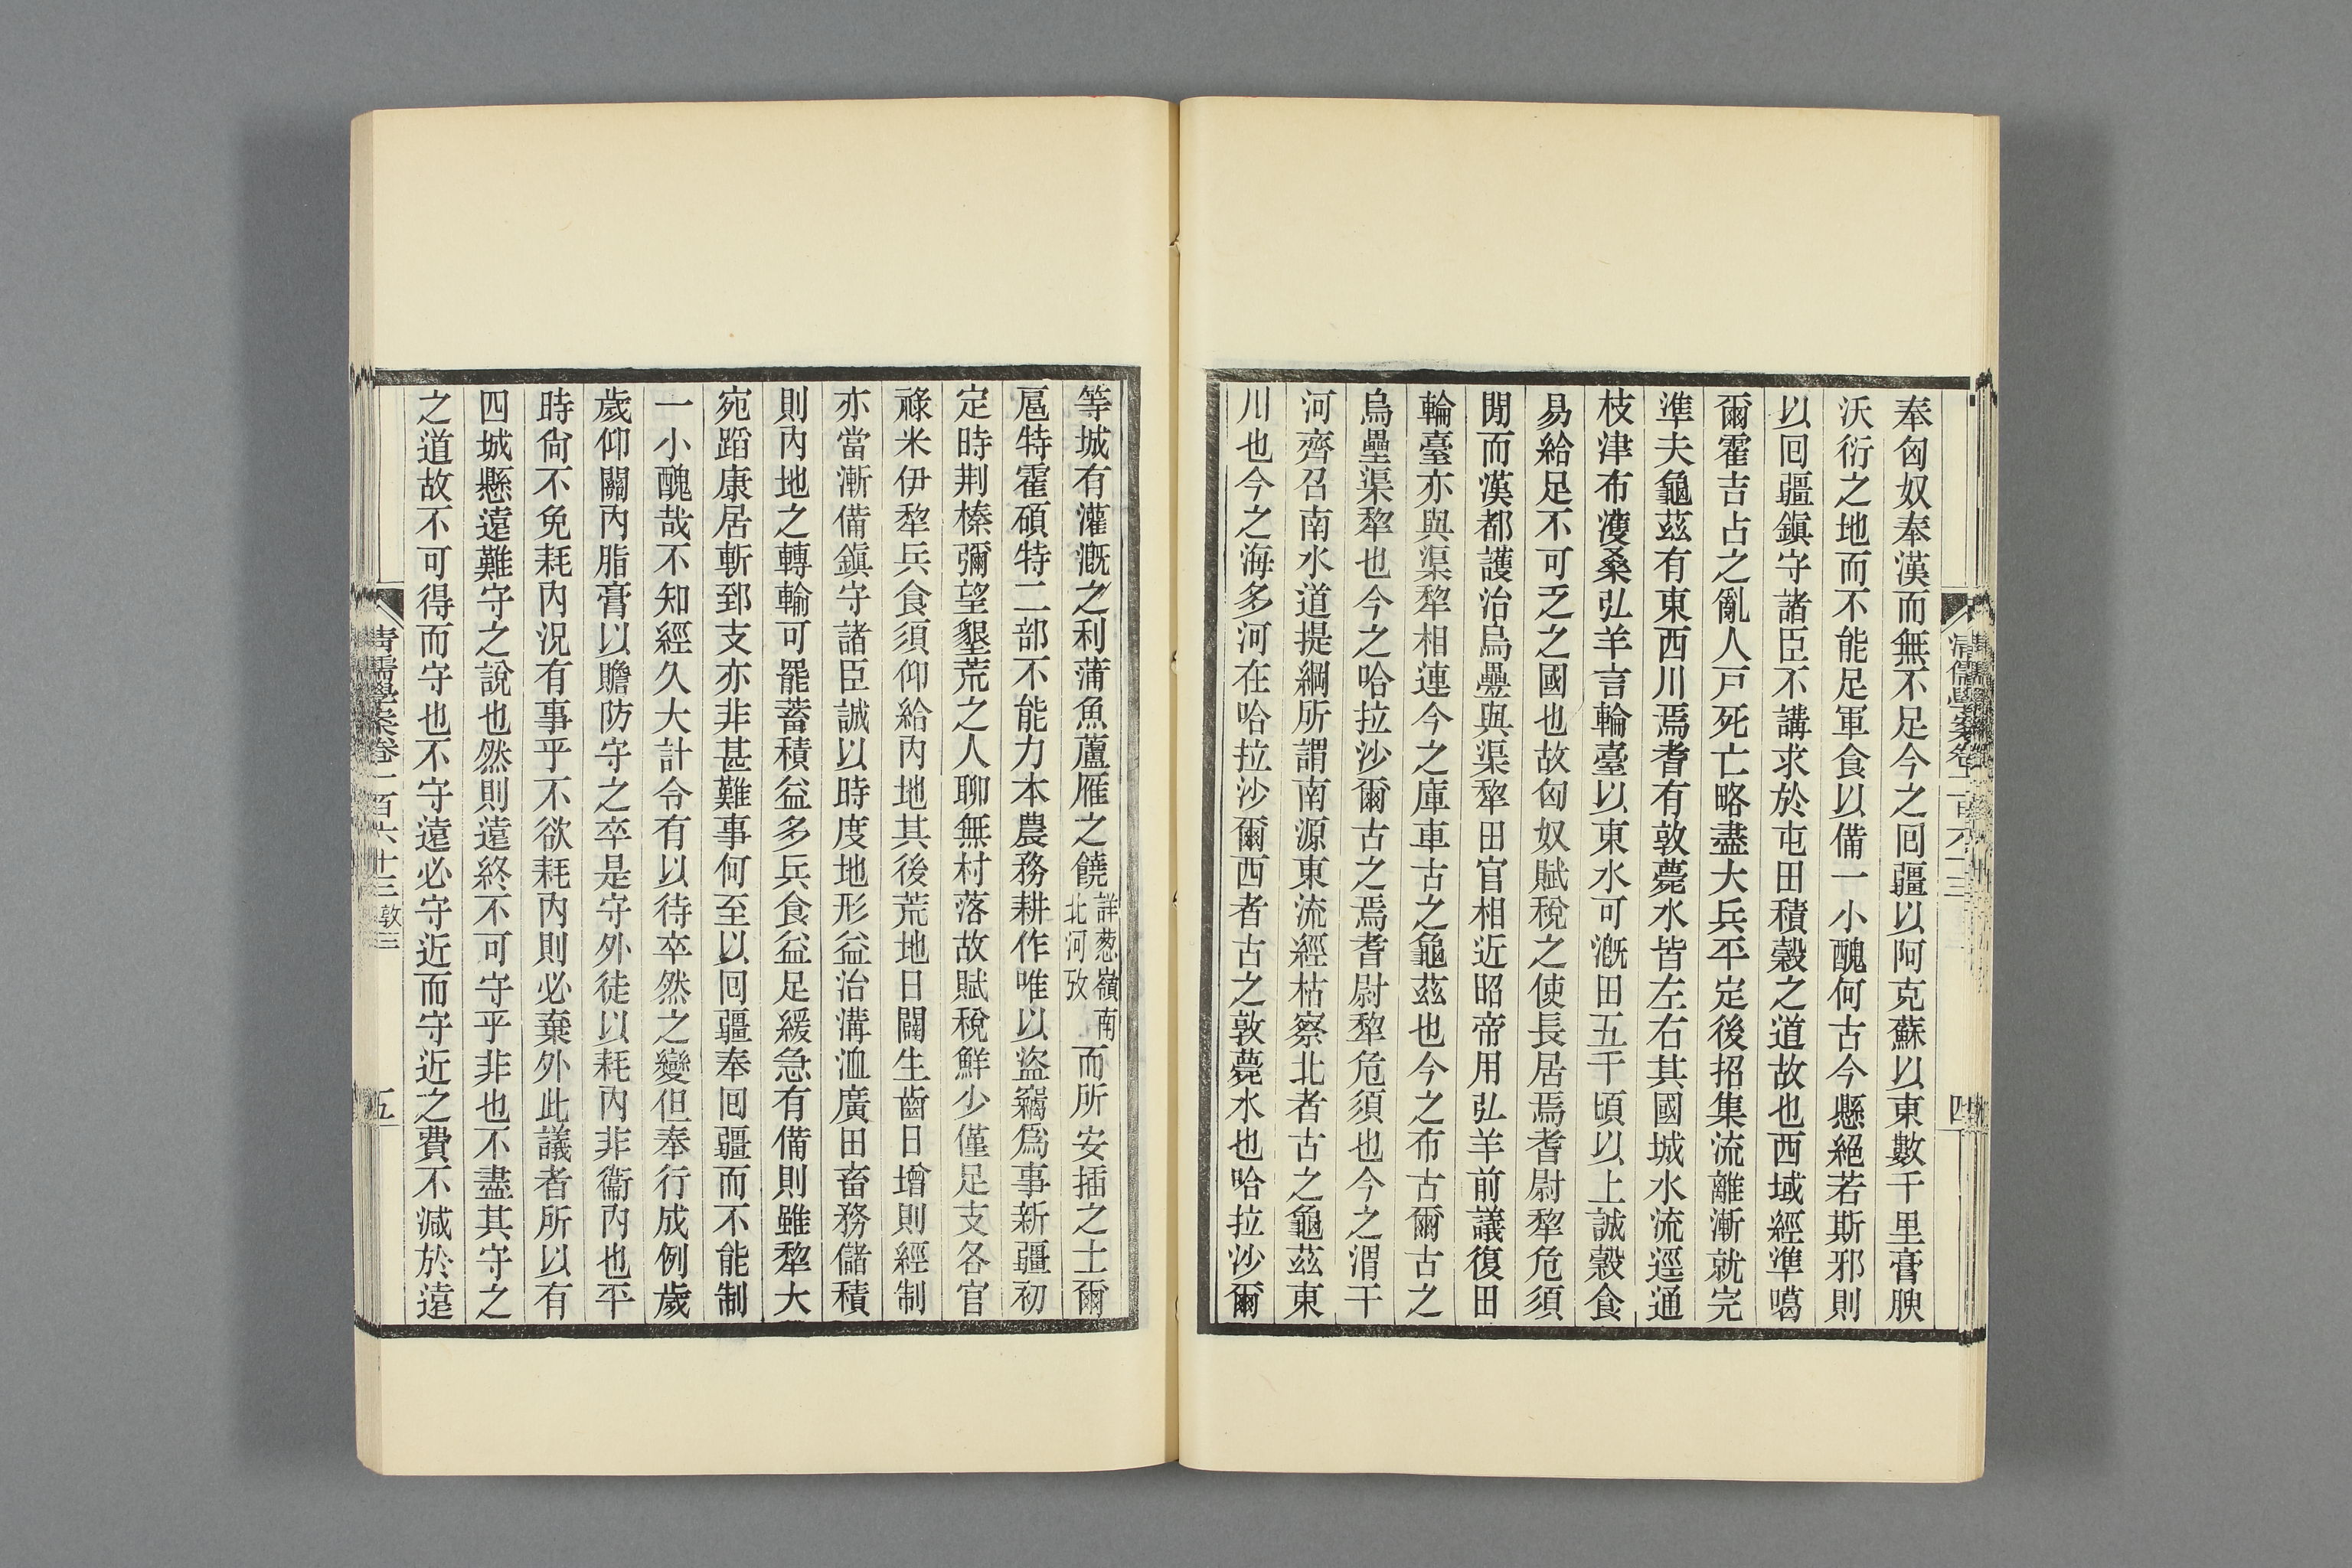 奉匈奴奉漢而無不足今之囘疆以阿克蘇以東數千里膏腴
沃衍之地而不能足軍食以備一小醜何古今懸絕若斯邪則
以囘疆鎭守諸臣不講求於屯田積穀之道故也西域經準噶
爾霍吉占之亂人戸死亡略盡大兵平定後招集流離漸就完
準夫龜茲有東西川焉耆有敦薨水皆左右其國城水流逕通
枝津布濩桑弘羊言輪臺以東水可漑田五千頃以上誠穀食
易給足不可乏之國也故匈奴賦稅之使長居焉耆尉犂危須
閒而漢都護治烏壘與渠犂田官相近昭帝用弘羊前議復田
輪臺亦與渠犂相連今之庫車古之龜茲也今之布古爾古之
烏壘渠犂也今之哈拉沙爾古之焉耆尉犂危須也今之渭干
河齊召南水道提綱所謂南源東流經枯察北者古之龜茲東
川也今之海多河在哈拉沙爾西者古之敦薨水也哈拉沙爾
清儒學案卷一百六十三
四
等城有灌漑之利蒲魚蘆雁之饒
詳葱嶺南
北河攷
而所安插之土爾
扈特霍碩特二部不能力本農務耕作唯以盜竊爲事新疆初
定時荆榛彌望墾荒之人聊無村落故賦稅鮮少僅足支各官
祿米伊犂兵食須仰給內地其後荒地日闢生齒日增則經制
亦當漸備鎭守諸臣誠以時度地形益治溝洫廣田畜務儲積
則內地之轉輸可罷蓄積益多兵食益足緩急有備則雖犂大
宛蹈康居斬郅支亦非甚難事何至以囘疆奉囘疆而不能制
一小醜哉不知經久大計令有以待卒然之變但奉行成例歲
歲仰關內脂膏以贍防守之卒是守外徒以耗內非衞內也平
時尙不免耗內況有事乎不欲耗內則必棄外此議者所以有
四城懸遠難守之說也然則遠終不可守乎非也不盡其守之
之道故不可得而守也不守遠必守近而守近之費不減於遠
清儒學案卷一百六十三 敦三
五